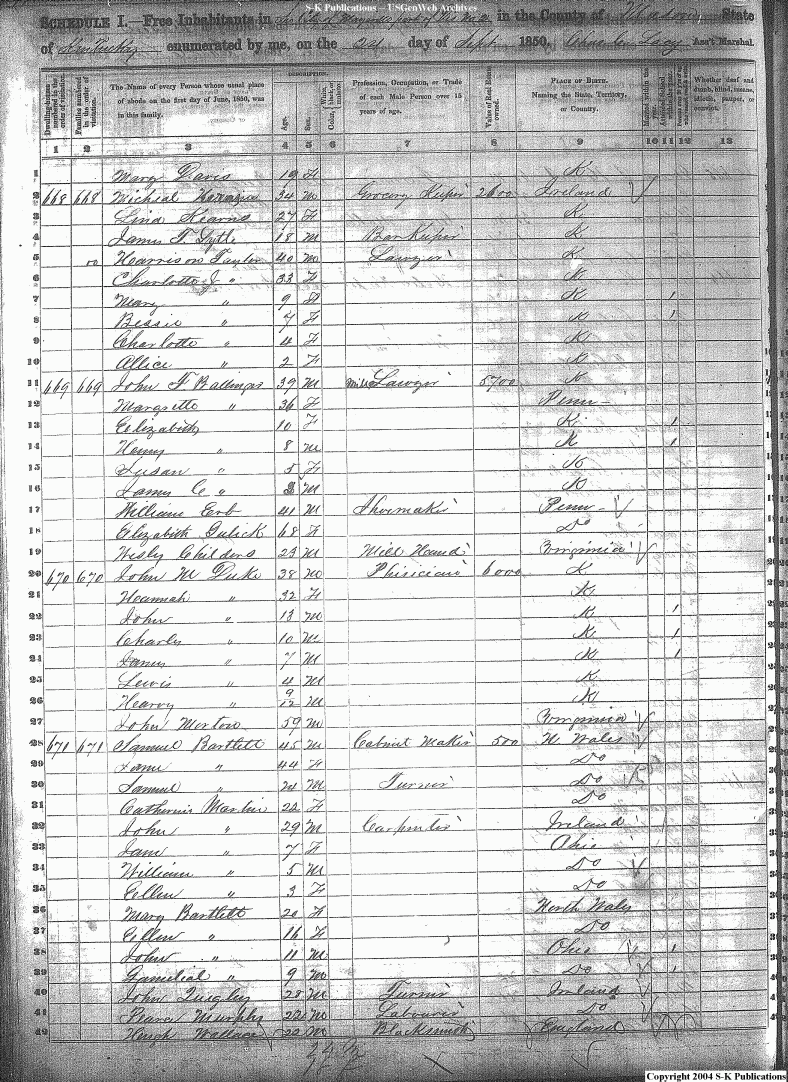 S-K Publications – USGenWeb Archives
SCHEDULE I.—Free Inhabitants in the City of part of in the County of Mason State
of Kentucky enumerated by me, on the 24 day of Sept 1850, Ass't Marshal.
Dwelling-houses numbered in the order of visitation.
Families numbered in the order of visitation.
The Name of every Person whose usual place of abode on the first day of June, 1850, was in this family.
DESCRIPTION.
Age.
Sex.
Color, white, black, or mulatto.
Profession, Occupation, or Trade of each Male Person over 15 years of age.
Value of Real Estate owned.
PLACE OF BIRTH. Naming the State, Territory, or Country.
Whether deaf and dumb, blind, insane, idiotic, pauper, or convict.
1 2 3 4 5 6 7 8 9 10 11 12 13
1 Mary Davis 19 F K
2 668 668 Micheal 34 M Grocery Keeper 2600 Ireland
3 Lina Kearns 27 F K
4 James T. Lytle 18 M Bar Keeper K
5 Harrison Taylor 40 M Lawyer K
6 Charlotte J " 33 F K
7 Mary " 9 F K 1
8 Bessie " 7 F K 1
9 Charlotte " 4 F K
10 Allice " 2 F K
11 669 669 John F Ballinger 39 M Lawyer 5700 K
12 Margrette " 36 F Penn
13 Elizabeth 10 F K 1
14 Henry " 8 M K 1
15 Susan " 5 F K
16 James C " M K
17 William Erb 41 M Shoemaker Penn
18 Elizabeth Gulick 68 F Do
19 Wesly Childers 23 M Mill Hand Virginia
20 670 670 John M Duke 38 M Phisician 6000 K
21 Hannah " 32 F K
22 John " 13 M K 1
23 Charles " 10 M K 1
24 James " 7 M K 1
25 Lewis " 4 M K
26 Hearvy " 9/12 M K
27 John Morton 59 M Virginia
28 671 671 Samuel Bartlett 45 M Cabinet Maker 500 N. Wales
29 Jane " 44 F Do
30 Samuel " 24 M Turner Do
31 Catherine Martin 22 F Do
32 John " 29 M Carpenter Ireland
33 Jane " 7 F Ohio
34 William " 5 M Do
35 Ellen " 3 F Do
36 Mary Bartlett 20 F North Wales
37 Ellen " 16 F Do
38 John " 11 M Ohio 1
39 Gamelial " 9 M Do 1
40 John Quegley 28 M Turner Ireland
41 Pearce Murphy 22 M Labourer Do
42 Hugh Wallace 22 M Blacksmith England
Copyright 2004 S-K Publications